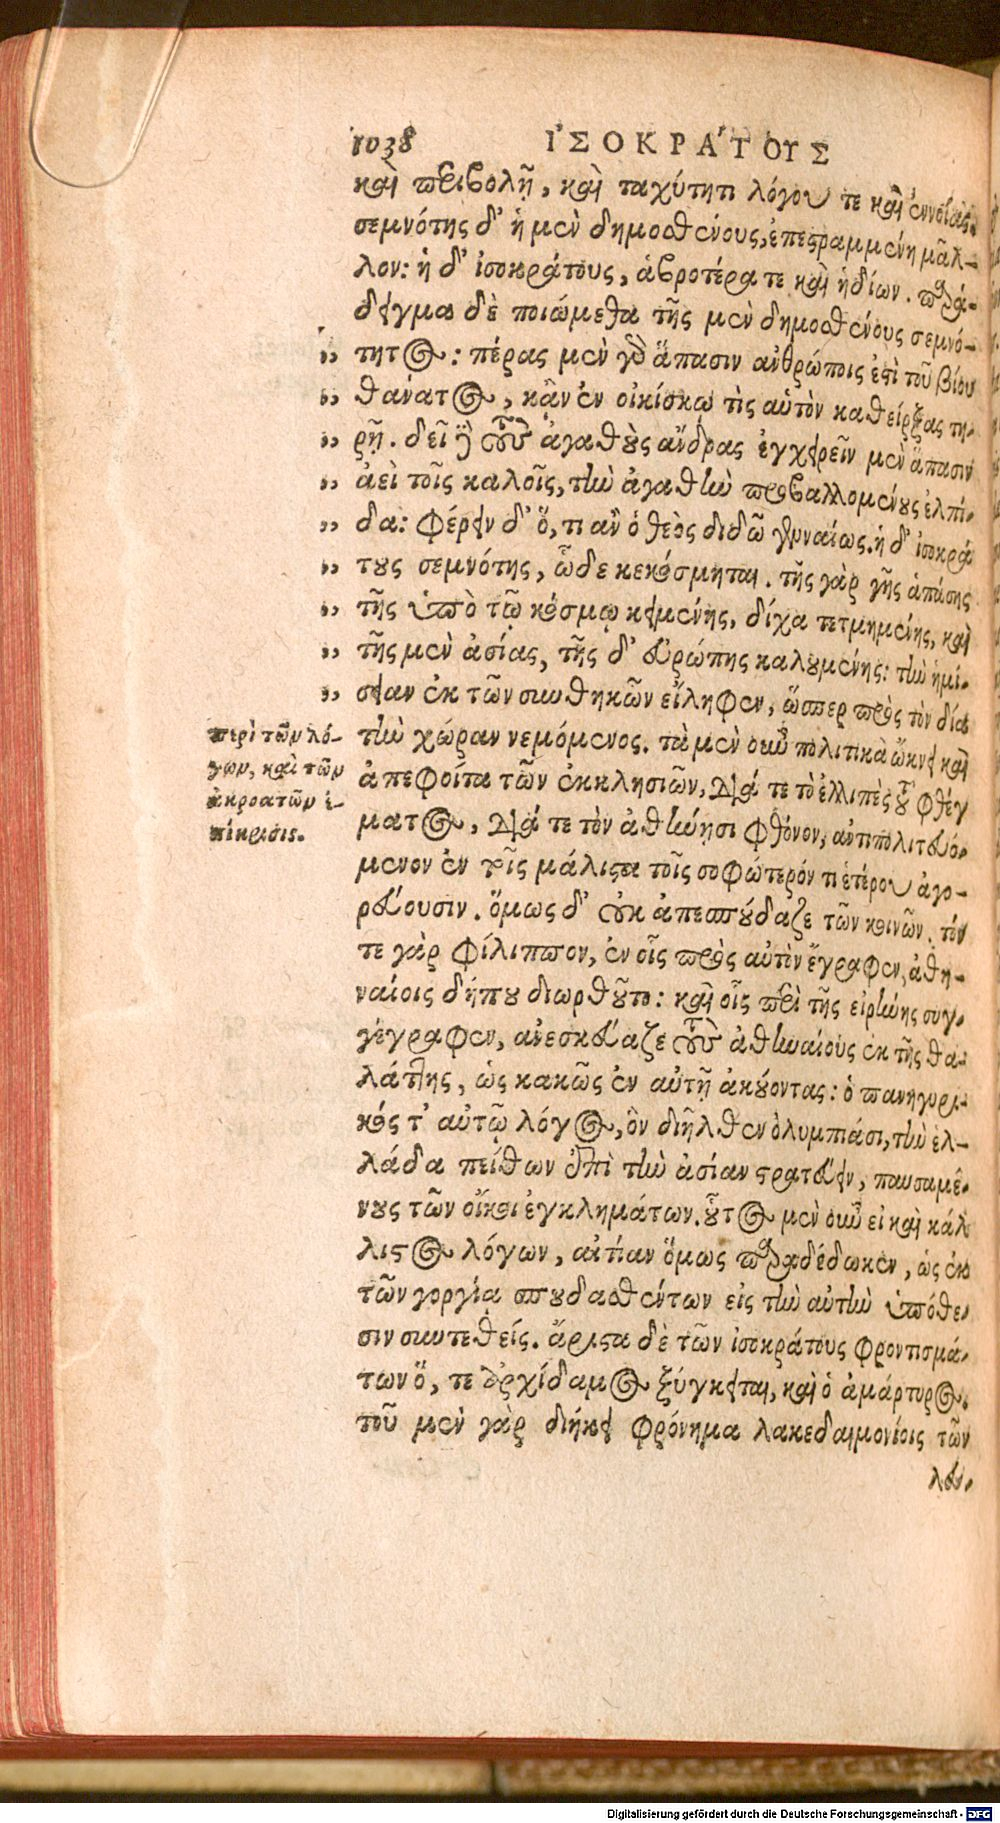 1038 ἸΣΟΚΡΆΤΟΥΣ
καὶ περιβολῇ, καὶ ταχύτητι λόγου τε καὶ ἐννοίας.
σεμνότης δ' ἡ μὲν δημοσθένους, ἐπεστραμμένη μᾶλ-
λον: ἡ δ' ἰσοκράτους, ἁβροτέρα τε καὶ ἡδίων. παρά-
δειγμα δὲ ποιώμεθα τῆς μὲν δημοσθένους σεμνό-
,, τητος: πέρας μὲν γὰρ ἅπασιν ἀνθρώποις ἐστὶ τοῦ βίου
,, θάνατος, κἂν ἐν οἰκίσκῳ τὶς αὑτὸν καθείρξας τη-
,, ρῇ. δεῖ δὲ τοὺς ἀγαθοὺς ἄνδρας ἐγχειρεῖν μὲν ἅπασιν
,, ἀεὶ τοῖς καλοῖς, τὴν ἀγαθὴν προβαλλομένους ἐλπί-
,, δα: φέρειν δ' ὅ, τι ἂν ὁ θεὸς διδῷ γενναίως. ἡ δ' ἰσοκρά
,, τους σεμνότης, ὧδε κεκόσμηται. τῆς γὰρ γῆς ἁπάσης
,, τῆς ὑπὸ τῷ κόσμῳ κειμένης, δίχα τετμημένης, καὶ
,, τῆς μὲν ἀσίας, τῆς δ' εὐρώπης καλουμένης: τὴν ἡμί-
,, σειαν ἐκ τῶν συνθηκῶν εἴληφεν, ὥσπερ πρὸς τὸν δία
τὴν χώραν νεμόμενος. τὰ μὲν οὖν πολιτικὰ ὤκνει καὶ
ἀπεφοίτα τῶν ἐκκλησιῶν, διά τε τὸ ἐλλιπὲς τοῦ φθέγ
ματος, διά τε τὸν ἀθήνησι φθόνον, ἀντιπολιτευό-
μενον ἐν τοῖς μάλιστα τοῖς σοφώτερόν τι ἑτέρου ἀγο-
ρεύουσιν. ὅμως δ' οὐκ ἀπεσπούδαζε τῶν κοινῶν. τόν
τε γὰρ φίλιππον, ἐν οἷς πρὸς αὐτὸν ἔγραφεν, ἀθη-
ναίοις δήπου διωρθοῦτο: καὶ οἷς περὶ τῆς εἰρήνης συγ-
γέγραφεν, ἀνεσκεύαζε τοὺς ἀθηναίους ἐκ τῆς θα-
λάττης, ὡς κακῶς ἐν αὐτῇ ἀκούοντας: ὁ πανηγυρι-
κός τ' αὐτῷ λόγος, ὃν διῆλθεν ὀλυμπιάσι, τὴν ἑλ-
λάδα πείθων ἐπὶ τὴν ἀσίαν στρατεύειν, παυσαμέ-
νους τῶν οἴκοι ἐγκλημάτων. οὗτος μὲν οὖν εἰ καὶ κάλ
λιστος λόγων, αἰτίαν ὅμως παραδέδωκεν, ὡς ἐκ
τῶν γοργίᾳ σπουδασθέντων εἰς τὴν αὐτὴν ὑπόθε-
σιν συντεθείς. ἄριστα δὲ τῶν ἰσοκράτους φροντισμά-
των ὅ, τε ἀρχίδαμος ξύγκειται, καὶ ὁ ἀμάρτυρος.
τοῦ μὲν γὰρ διήκει φρόνημα λακεδαιμονίοις τῶν
λευ-
περὶ τῶν λό-
γων, καὶ τῶν
ἀκροατῶν ἐ-
πίκρισις.
Digitalisierung gefördert durch die Deutsche Forschungsgemeinschaft - DFG